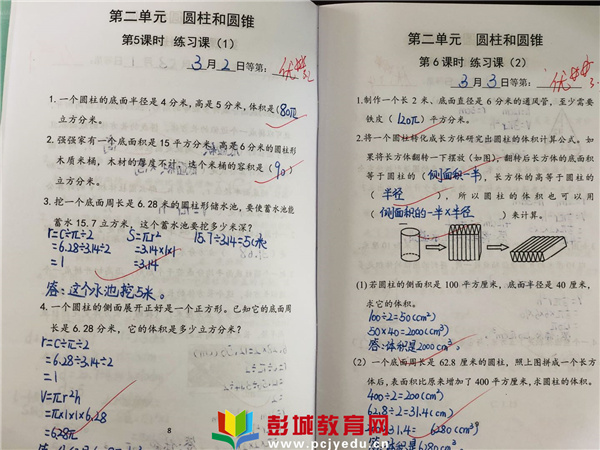 第二单元 圆柱和圆锥
第5课时 练习课（1）
3月2日等第：优
1.一个圆柱的底面半径是4分米，高是5分米，体积是（80π）
立方分米。
2.强强家有一个底面积是15平方分米，高是6分米的圆柱形
木质米桶，木材的厚度不计，这个米桶的容积是（90）
立方分米。
3.挖一个底面周长是6.28米的圆柱形储水池，要使蓄水池能
蓄水15.7立方米，这个蓄水池要挖多少米深？
r=C÷π÷2 S=πr² 15.7÷3.14=5(米)
=6.28÷3.14÷2 =3.14×1×1
=1 =3.14
答：这个水池挖5米。
4.一个圆柱的侧面展开正好是一个正方形。已知它的底面周
长是6.28分米，它的体积是多少立方分米？
r=C÷π÷2
=6.28÷3.14÷2
=1
V=πr²h
=π×1×1×6.28
=6.28π
8
第二单元 圆柱和圆锥
第6课时 练习课（2）
3月3日等第：优
1.制作一个长2米、底面直径是6分米的通风管，至少需要
铁皮（120π）平方分米。
2.将一个圆柱转化成长方体研究出圆柱的体积计算公式。如
果将长方体翻转一下摆放（如图），翻转后长方体的底面积
等于圆柱的（侧面积一半），长方体的高等于圆柱的
（半径），所以圆柱的体积也可以用
（侧面积的一半×半径）来计算。
(1)若圆柱的侧面积是100平方厘米，底面半径是40厘米，
求它的体积。
100÷2=50(cm²)
50×40=2000(cm³)
答：体积是2000cm³。
(2)一个底面周长是62.8厘米的圆柱，照上图拼成一个长方
体后，表面积比原来增加了400平方厘米，求圆柱的体积。
400÷2=200(cm²)
62.8÷2=31.4(cm)
200×31.4=6280(cm³)
答：体积是6280cm³
彭城教育网
www.pcjyedu.cn